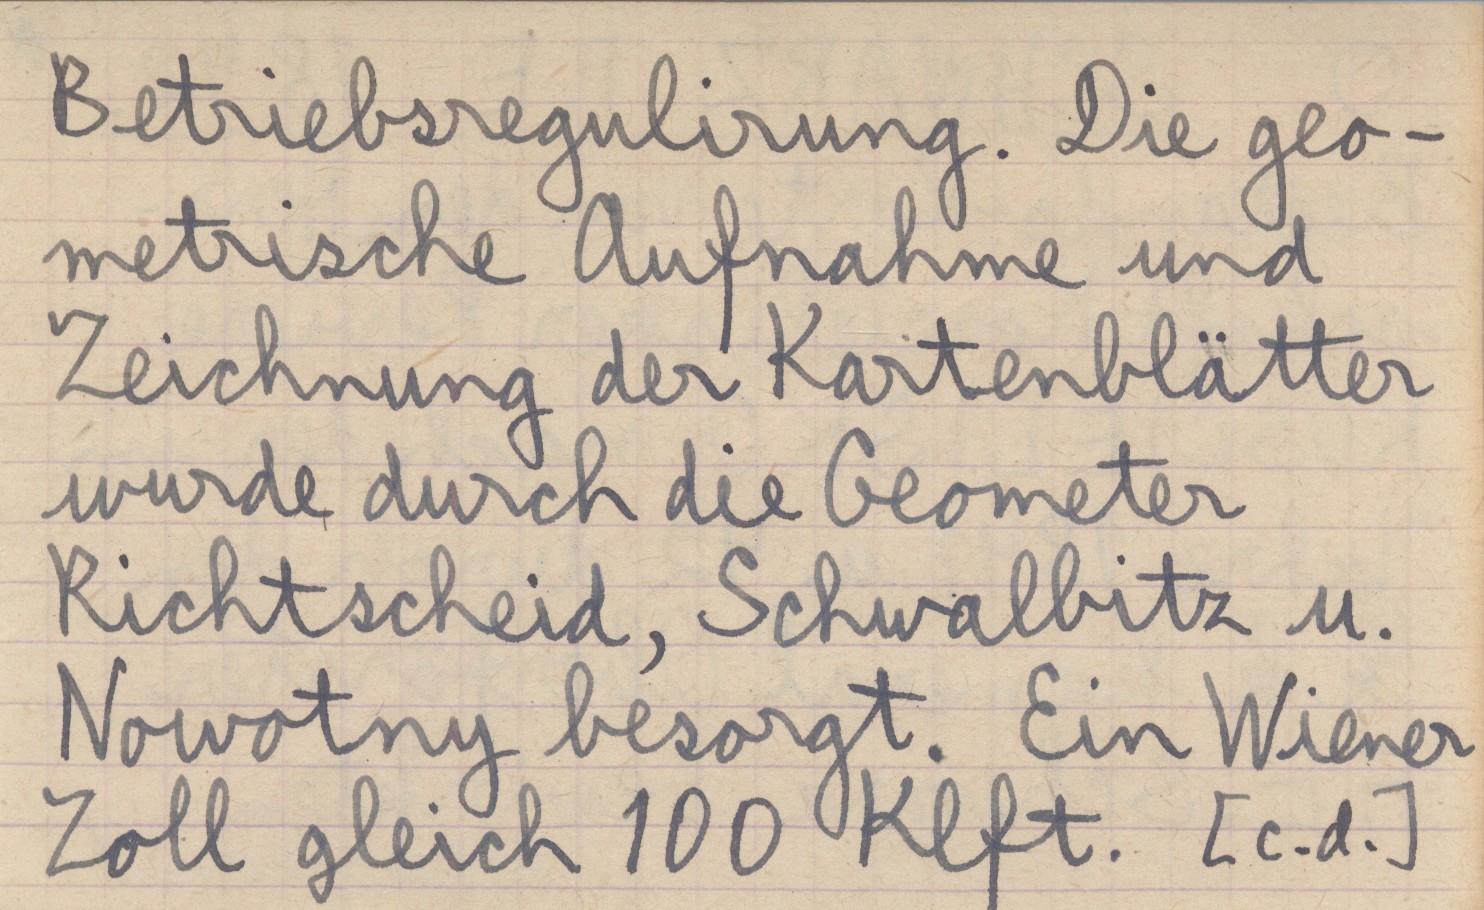 Betriebsregulirung. Die geo-
metrische Aufnahme und
Zeichnung der Kartenblätter
wurde durch die Geometer
Richtscheid, Schwalbitz u.
Nowotny besorgt. Ein Wiener
Zoll gleich 100 Klft. [c.d.]